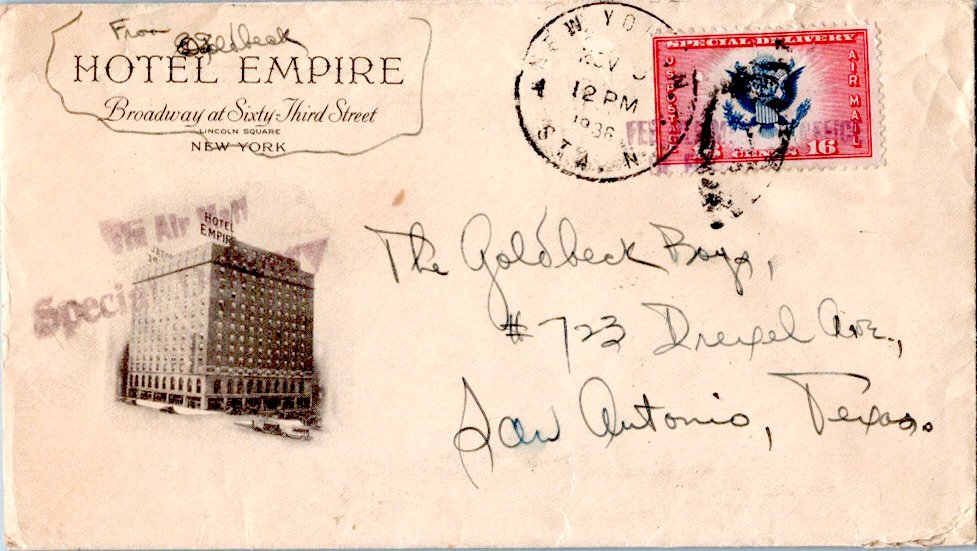 From Goldbeck
HOTEL EMPIRE
Broadway at Sixty-Third Street
LINCOLN SQUARE
NEW YORK
NEW YO
NOV
12 PM
1936
STA. N.
SPECIAL DELIVERY
U S POSTAGE
AIR MAIL
CENTS 16
Via Air Mail
Special
HOTEL
EMPIRE
The Goldbeck Boys,
#723 Drexel Ave.,
San Antonio, Texas.